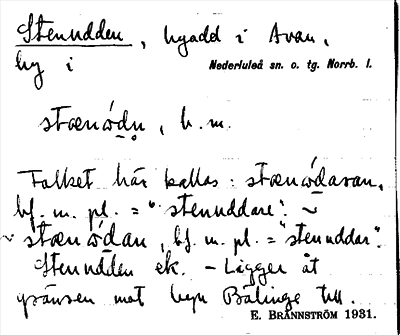 Stenudden, bydel i Avan,
by i Nederluleå sn. o. tg. Norrb. l.
stænώ̣dn̥, b. m.
Folket här kallas: stænώdavan,
bf. m. pl. = "stenuddare". ~
~ stænώdan, bf. m. pl. = "stenuddar".
Stenudden ek. – Ligger åt
gränsen mot byn Bälinge till.
E. BRÄNNSTRÖM 1931.